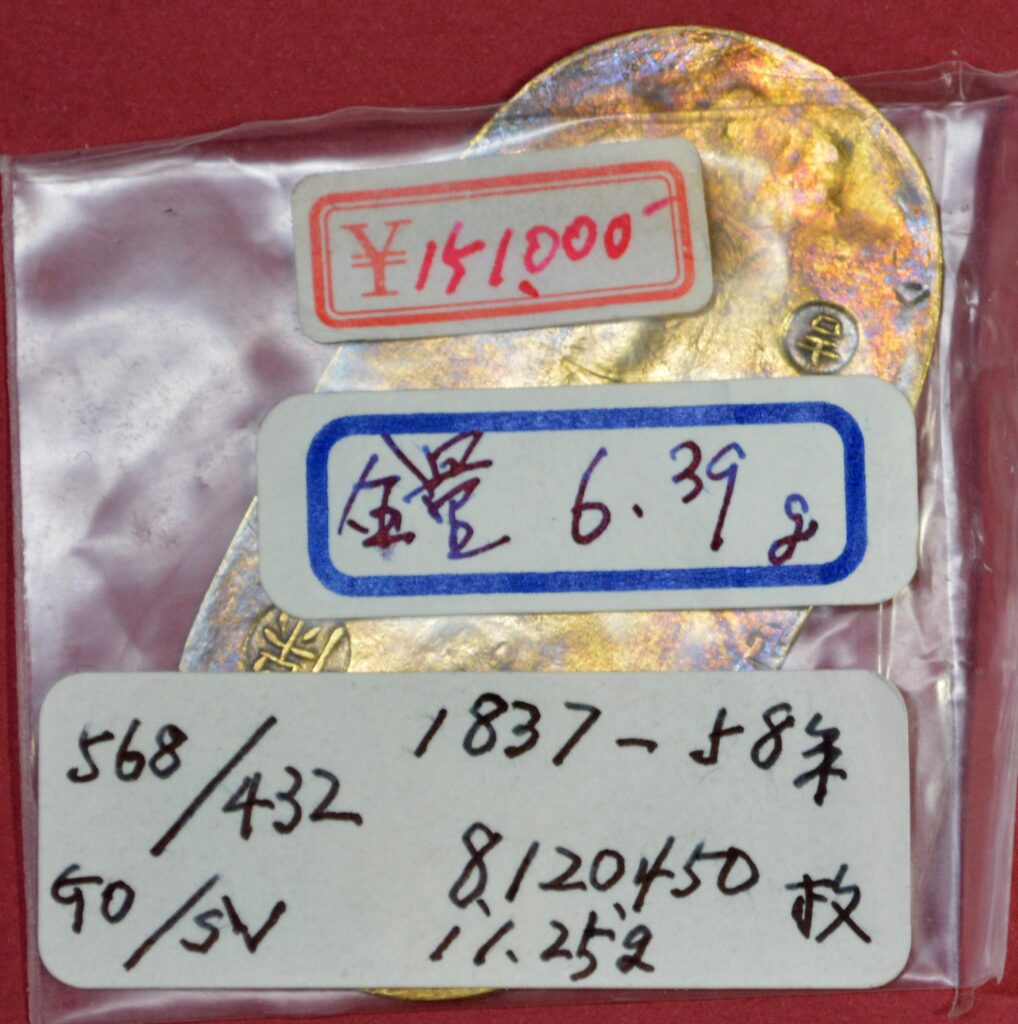 ¥151,000-
金量 6.39g
568/432 1837-58年
GO/SV 8,120,450枚
11.25g